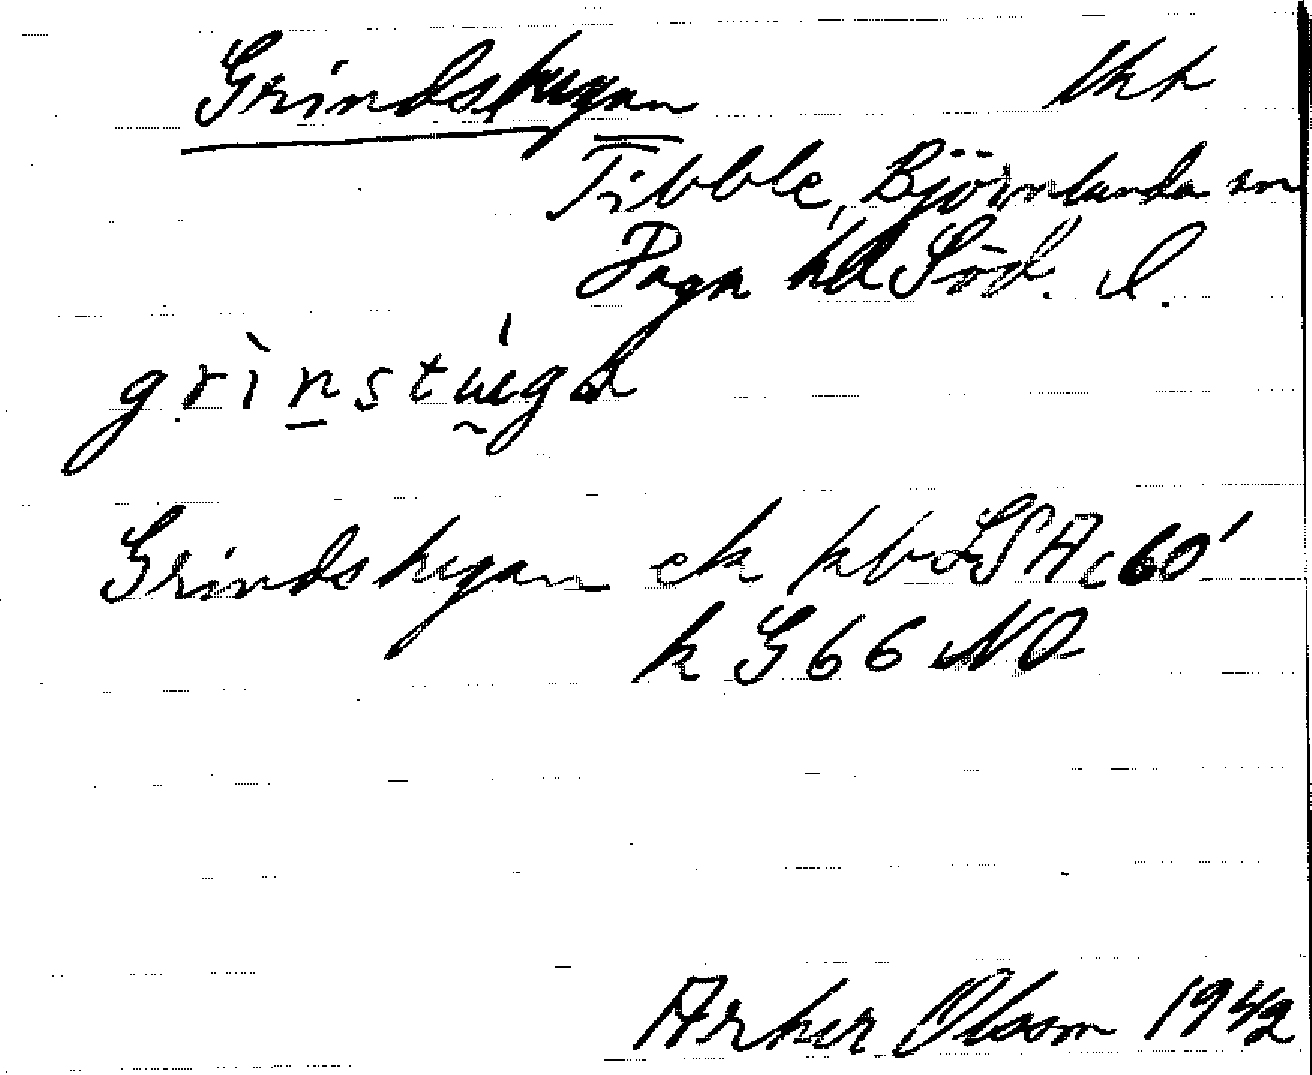 Grindstugan lht
Tibble, Björnlunda sn
Daga hd Söd. l.
grìnstúgɑ
Grindstugan ek kb LSA c 60'
k G 66 NO
Arker Olsson 1942